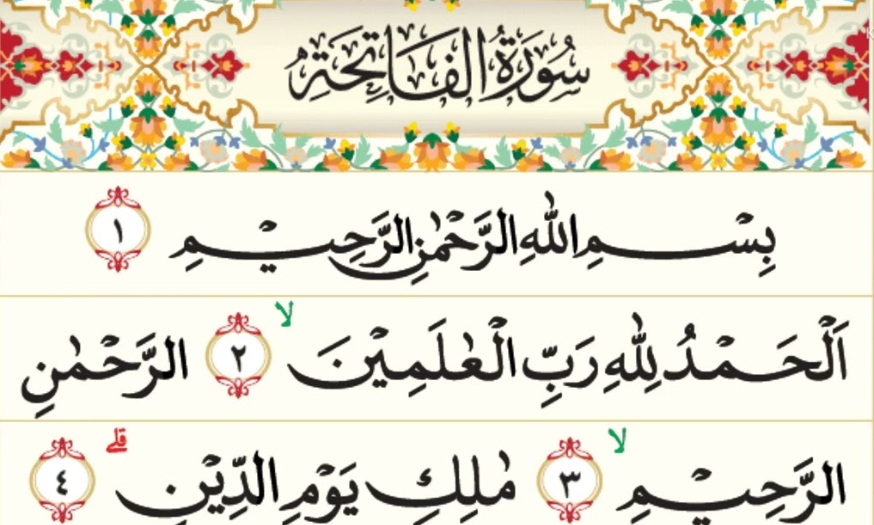 سُوْرَةُ الْفَاتِحَةِ
بِسْمِ اللّٰهِ الرَّحْمٰنِ الرَّحِيْمِ ١
اَلْحَمْدُ لِلّٰهِ رَبِّ الْعٰلَمِيْنَ ۙ ٢ الرَّحْمٰنِ
الرَّحِيْمِ ۙ ٣ مٰلِكِ يَوْمِ الدِّيْنِ ۗ ٤